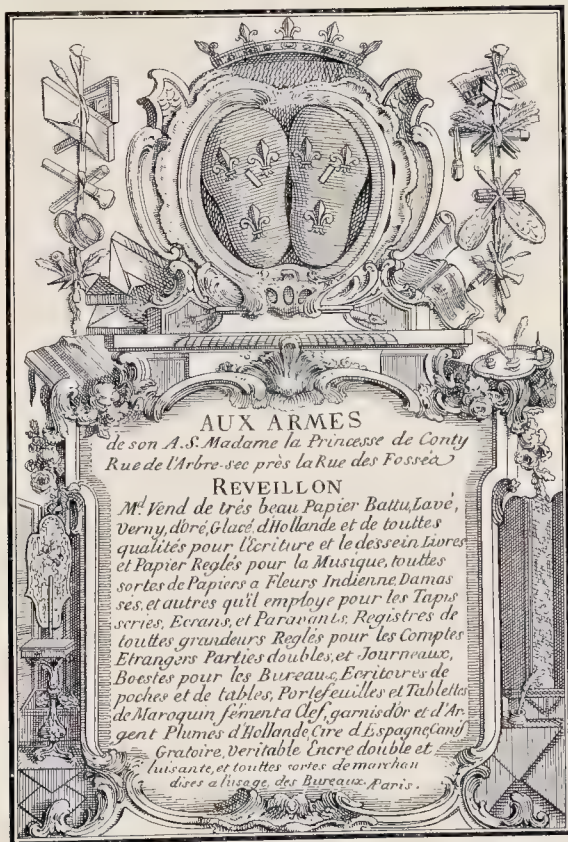 AUX ARMES
de son A.S. Madame la Princesse de Conty
Rue de l'Arbre-sec près la Rue des Fossés
REVEILLON
M.d Vend de trés beau Papier Battu, Lavé,
Verny, doré, Glacé, d'Hollande et de touttes
qualités pour l'Ecriture et le dessein Livres
et Papier Reglés pour la Musique, touttes
sortes de Papiers a Fleurs Indienne, Damas
sés, et autres qu'il employe pour les Tapis
series, Ecrans, et Paravants, Registres de
touttes grandeurs Reglés pour les Comptes
Etrangers Parties doubles, et Journeaux,
Boestes pour les Bureaux, Ecritoires de
poches et de tables, Portefeuilles et Tablettes
de Maroquin fêment a Clef, garnis d'Or et d'Ar-
gent Plumes d'Hollande, Cire d'Espagne, Canif
Gratoire, Veritable Encre double et
luisante, et touttes sortes de marchan
dises a l'usage des Bureaux. Paris.